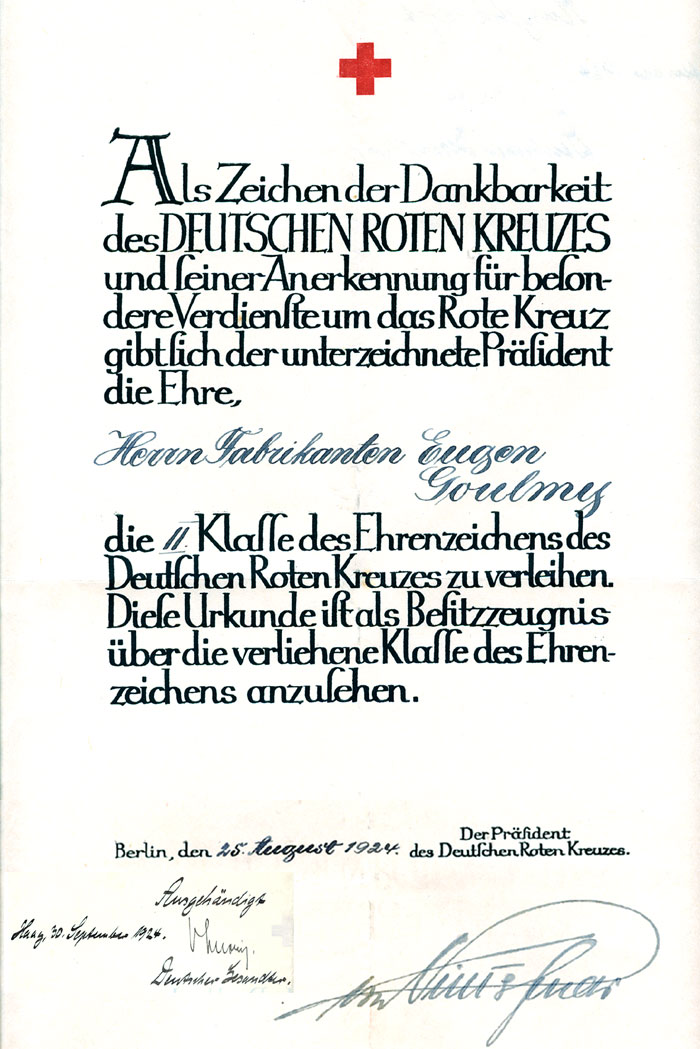 Als Zeichen der Dankbarkeit
des DEUTSCHEN ROTEN KREUZES
und ſeiner Anerkennung für beſon-
dere Verdienſte um das Rote Kreuz
gibt ſich der unterzeichnete Präſident
die Ehre,
Herrn Fabrikanten Eugen
Goulmy
die II. Klaſſe des Ehrenzeichens des
Deutſchen Roten Kreuzes zu verleihen.
Dieſe Urkunde iſt als Beſitzzeugnis
über die verliehene Klaſſe des Ehren-
zeichens anzuſehen.
Der Präſident
Berlin, den 25. August 1924. des Deutſchen Roten Kreuzes.
Ausgehändigt
Haag, 30. September 1924.
Deutscher Gesandter.